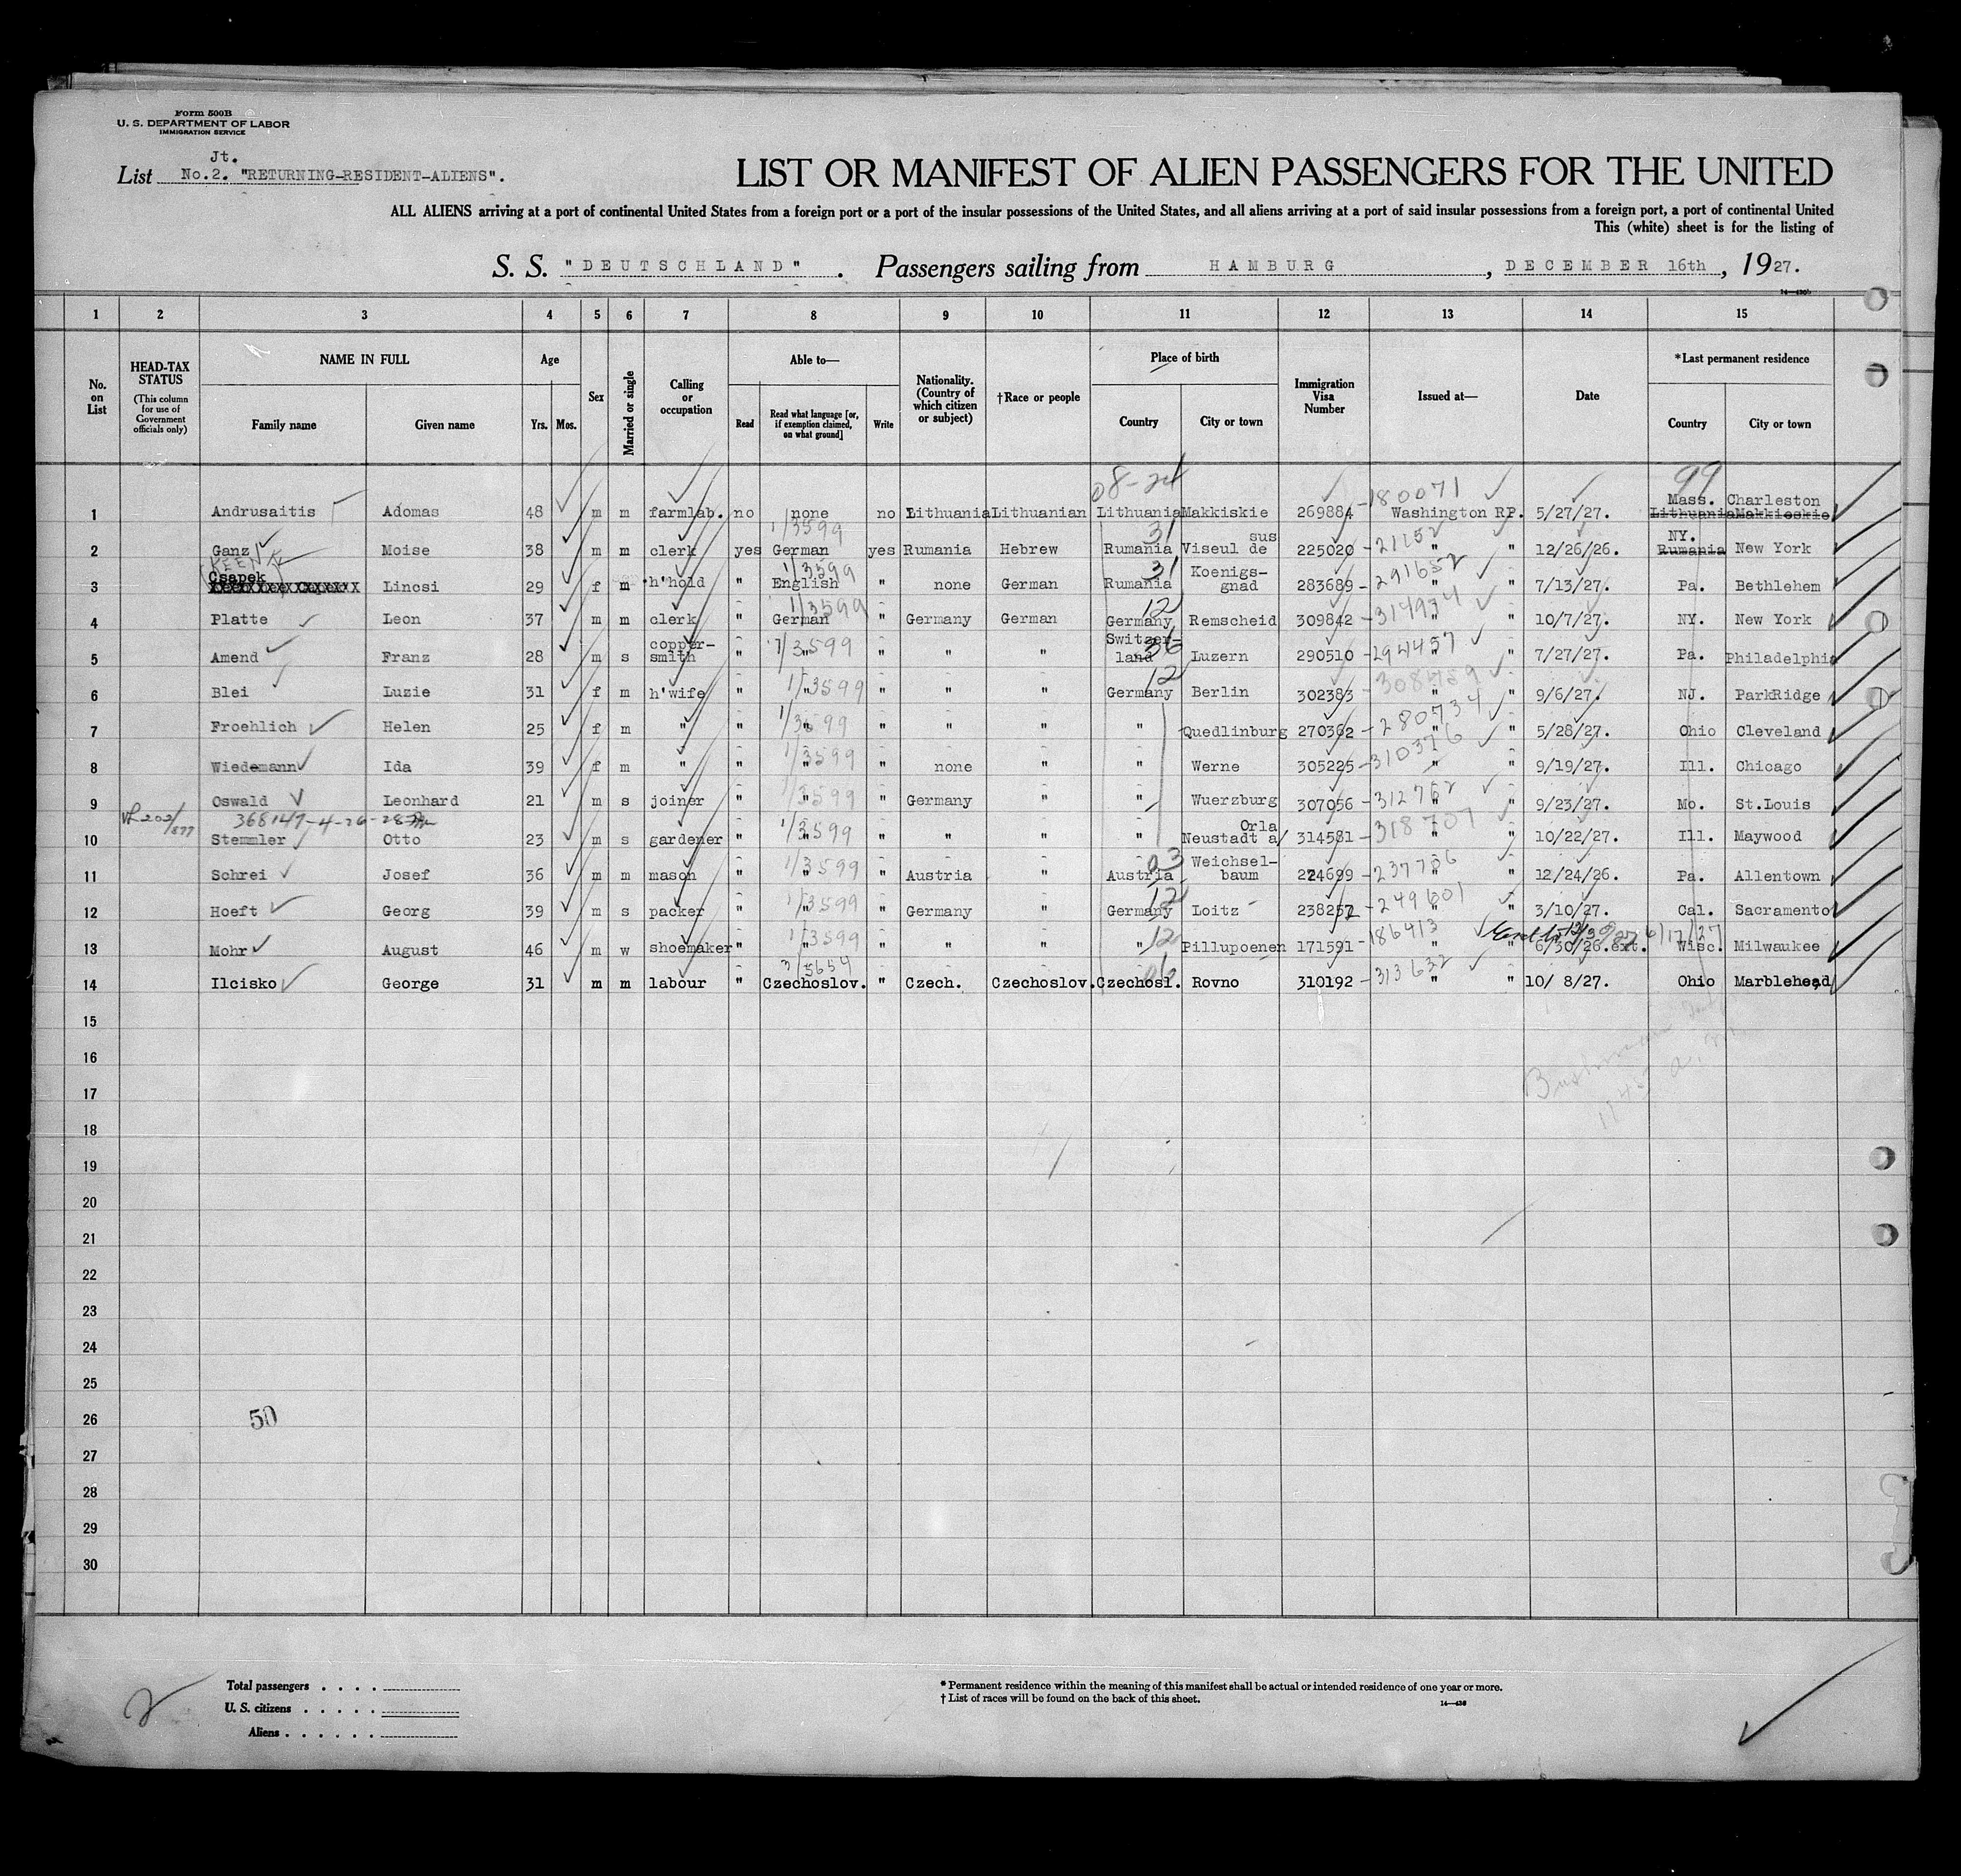 Form 500B
U. S. DEPARTMENT OF LABOR
IMMIGRATION SERVICE
Jt.
List No.2. "RETURNING-RESIDENT-ALIENS".
LIST OR MANIFEST OF ALIEN PASSENGERS FOR THE UNITED
ALL ALIENS arriving at a port of continental United States from a foreign port or a port of the insular possessions of the United States, and all aliens arriving at a port of said insular possessions from a foreign port, a port of continental United
This (white) sheet is for the listing of
S. S. "DEUTSCHLAND". Passengers sailing from HAMBURG, DECEMBER 16th, 1927.
1 2 3 4 5 6 7 8 9 10 11 12 13 14 15
No. on List
HEAD-TAX STATUS (This column for use of Government officials only)
NAME IN FULL
Family name Given name
Age
Yrs. Mos.
Sex
Married or single
Calling or occupation
Able to—
Read
Read what language [or, if exemption claimed, on what ground]
Write
Nationality. (Country of which citizen or subject)
†Race or people
Place of birth
Country City or town
Immigration Visa Number
Issued at—
Date
*Last permanent residence
Country City or town
08-24 180071 99
Mass. Charleston
1 Andrusaitis Adomas 48 m m farmlab. no none no Lithuania Lithuanian Lithuania Makkiskie 269884 Washington RP. 5/27/27. Lithuania Makkieskie
1/3599 31 sus 21152 NY.
2 Ganz Moise 38 m m clerk yes German yes Rumania Hebrew Rumania Viseul de 225020 " " 12/26/26. Rumania New York
(KEEN)
Csapek 1/3599 31 Koenigs- 291652
3 Lincsi 29 f m h'hold " English " none German Rumania gnad 283689 " " 7/13/27. Pa. Bethlehem
1/3599 12 314974
4 Platte Leon 37 m m clerk " German " Germany German Germany Remscheid 309842 " " 10/7/27. NY. New York
copper- 1/3599 Switzer- 36 294457
5 Amend Franz 28 m s smith " " " " " land Luzern 290510 " " 7/27/27. Pa. Philadelphia
1/3599 12 308459
6 Blei Luzie 31 f m h'wife " " " " " Germany Berlin 302383 " " 9/6/27. NJ. ParkRidge
1/3599 280734
7 Froehlich Helen 25 f m " " " " " " " Quedlinburg 270362 " " 5/28/27. Ohio Cleveland
1/3599 310376
8 Wiedemann Ida 39 f m " " " " none " " Werne 305225 " " 9/19/27. Ill. Chicago
1/3599 312762
9 Oswald Leonhard 21 m s joiner " " " Germany " " Wuerzburg 307056 " " 9/23/27. Mo. St.Louis
VL 202/877 368147-4-26-28 1/3599 Orla 318707
10 Stemmler Otto 23 m s gardener " " " " " " Neustadt a/ 314581 " " 10/22/27. Ill. Maywood
1/3599 03 Weichsel- 237706
11 Schrei Josef 36 m m mason " " " Austria " Austria baum 224699 " " 12/24/26. Pa. Allentown
1/3599 12 249601
12 Hoeft Georg 39 m s packer " " " Germany " Germany Loitz 238252 " " 3/10/27. Cal. Sacramento
1/3599 12 186413 6/17/27
13 Mohr August 46 m w shoemaker " " " " " " Pillupoenen 171591 " " 6/30/26.ext. Wisc. Milwaukee
3/5654 06 313632
14 Ilcisko George 31 m m labour " Czechoslov. " Czech. Czechoslov. Czechosl. Rovno 310192 " " 10/ 8/27. Ohio Marblehead
15
16
17
1145 a.m.
18
19
20
21
22
23
24
25
26
50
27
28
29
30
2
Total passengers . . . .
U. S. citizens . . . . .
Aliens . . . . . .
* Permanent residence within the meaning of this manifest shall be actual or intended residence of one year or more.
† List of races will be found on the back of this sheet.
14—430